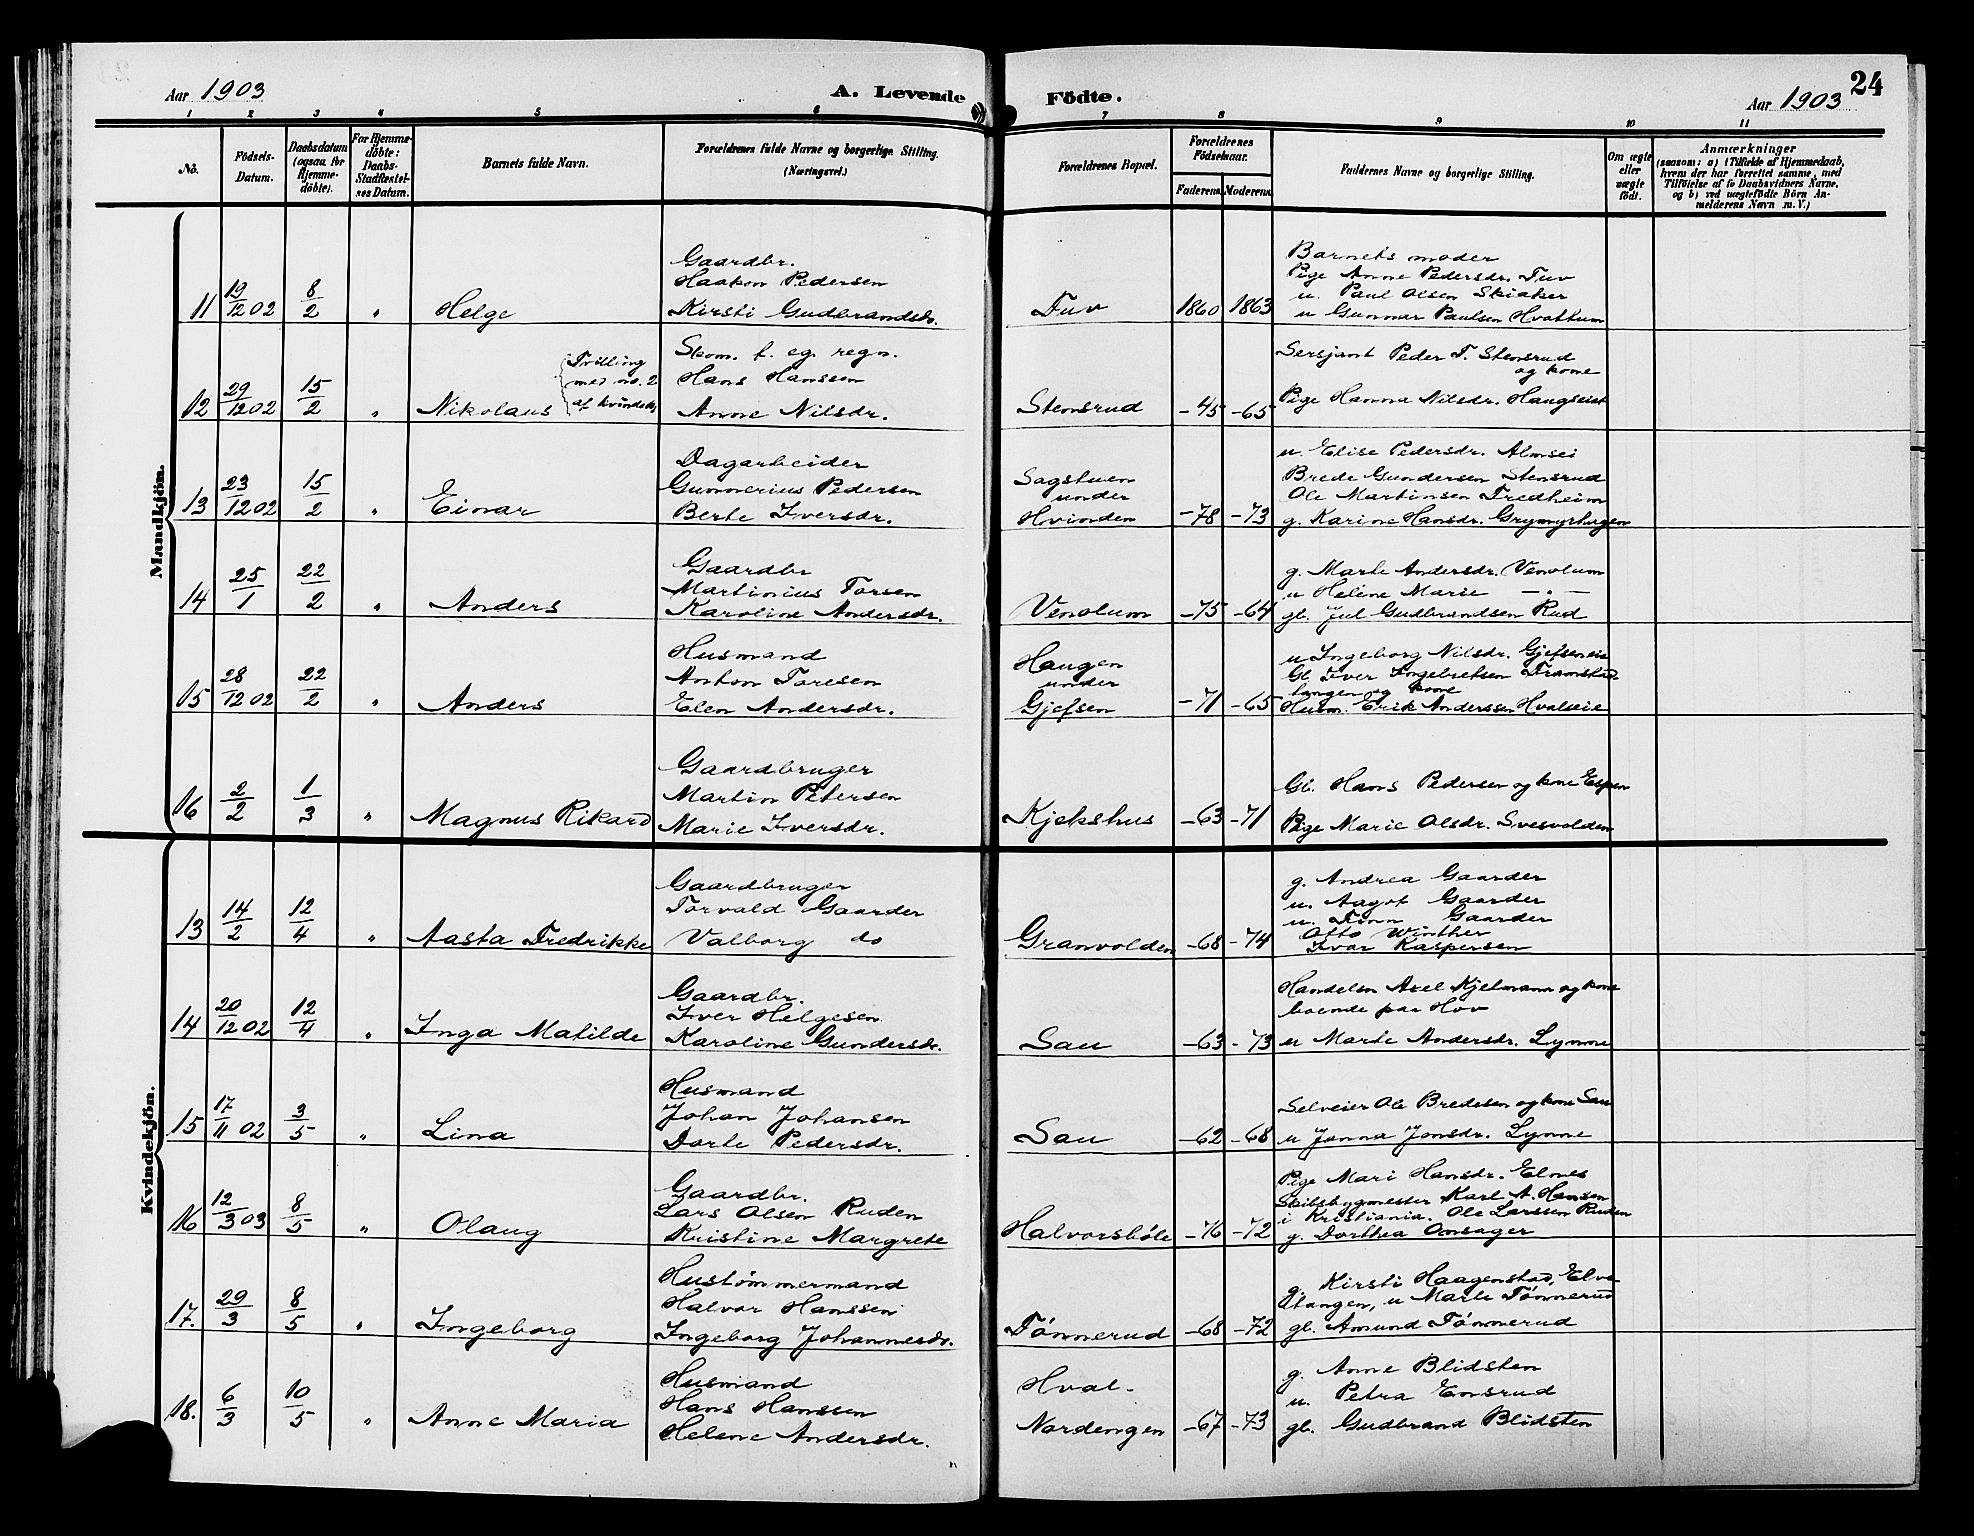 24
Aar 1903
A. Levende
Födte.
Aar 1903
1 2 3 4 5 6 7 8 9 10 11
No.
Födsels-
Datum.
Daabsdatum
(ogsaa for
Hjemme-
döbte).
For Hjemme-
döbte:
Daabs-
Stadfæstel-
ses Datum.
Barnets fulde Navn.
Forældrenes fulde Navne og borgerlige Stilling.
(Næringsvei.)
Forældrenes Bopæl.
Forældrenes
Födselsaar.
Faderens. Moderens.
Faddernes Navne og borgerlige Stilling.
Om ægte
eller
uægte
födt.
Anmærkninger
(saasom: a) i Tilfælde af Hjemmedaab,
hvem der har forrettet samme, med
Tilföielse af to Daabsvidners Navne,
og b) ved uægtefödte Börn An-
melderens Navn m. V.)
Mandkjön.
11 19/12 02 8/2 " Helge
Gaardbr.
Haakon Pedersen
Kirsti Gudbrandsdr.
Tuv 1860 1863
Barnets moder
Pige Anne Pedersdr. Tuv
u. Paul Olsen Skiaker
u Gunnar Paulsen Hvattum
12 29/12 02 15/2 " Nikolaus
Tvilling
med no. 2
af kvindekj.
Skom. f. eg. regn.
Hans Hanssen
Anne Nilsdr.
Stensrud -45 -65
Sersjant Peder T. Stensrud
og kone
Pige Hanna Nilsdr. Haugseiet
13 23/12 02 15/2 " Einar
Dagarbeider
Gunnerius Pedersen
Berte Iversdr.
Sagstuen
under
Hvinden -78 -73
u. Elise Pedersdr. Almsei
Brede Gundersen Stensrud
Ole Martinsen Fredheim
g. Karine Hansdr. Grymyrhagen
14 25/1 22/2 " Anders
Gaardbr
Martinius Torsen
Karoline Andersdr.
Venolum -75 -64
g. Marte Andersdr. Venolum
u Helene Marie —"—
gb. Jul Gudbrandsen Rud
15 28/12 02 22/2 " Anders
Husmand
Anton Toresen
Elen Andersdr.
Haugen
under
Gjefsen -71 -65
u Ingeborg Nilsdr. Gjefseneie
Gb. Iver Ingebretsen Framstad-
hagen og kone
Husm. Erik Anderssen Hvalseie
16 2/2 1/3 " Magnus Rikard
Gaardbruger
Martin Petersen
Marie Iversdr.
Kjekshus -63 -71
Gb. Hans Pedersen og kone Espen
Pige Marie Olsdr. Svesvolden
Kvindekjön.
13 14/2 12/4 " Aasta Fredrikke
Gaardbruger
Torvald Gaarder
Valborg do
Granvolden -68 -74
g. Andrea Gaarder
u. Aagot Gaarder
u. Finn Gaarder
Otto Winther
Ivar Kaspersen
14 20/12 02 12/4 " Inga Matilde
Gaardbr.
Iver Helgesen
Karoline Gundersdr.
Sau -63 -73
Handelsm Axel Kjelmann og kone
boende paa Hov
u Marte Andersdr. Lynne
15 17/11 02 3/5 " Lina
Husmand
Johan Johansen
Dorte Pedersdr.
Sau -62 -68
Selveier Ole Bredesen og kone Sau
u Janna Jonsdr. Lynne
16 12/3 03 8/5 " Olaug
Gaardbr.
Lars Olsen Ruden
Kristine Margrete
Halvorsböle -76 -72
Pige Mari Hansdr. Elnes
Skibsbygmester Karl A. Hansen
i Kristiania. Ole Larssen Ruden
g. Dorthea Onsager
17. 29/3 8/5 " Ingeborg
Hustømmermand
Halvor Hanssen
Ingeborg Johannesdr.
Tønnerud -68 -72
g. Kirsti Haagenstad, Elve-
stangen, u Marte Tønnerud
gb. Amund Tønnerud
18. 6/3 10/5 " Anne Maria
Husmand
Hans Hanssen
Helene Andersdr.
Hval-
Nordengen -67 -73
g. Anne Blidsten
u. Petra Ensrud
gb. Gudbrand Blidsten